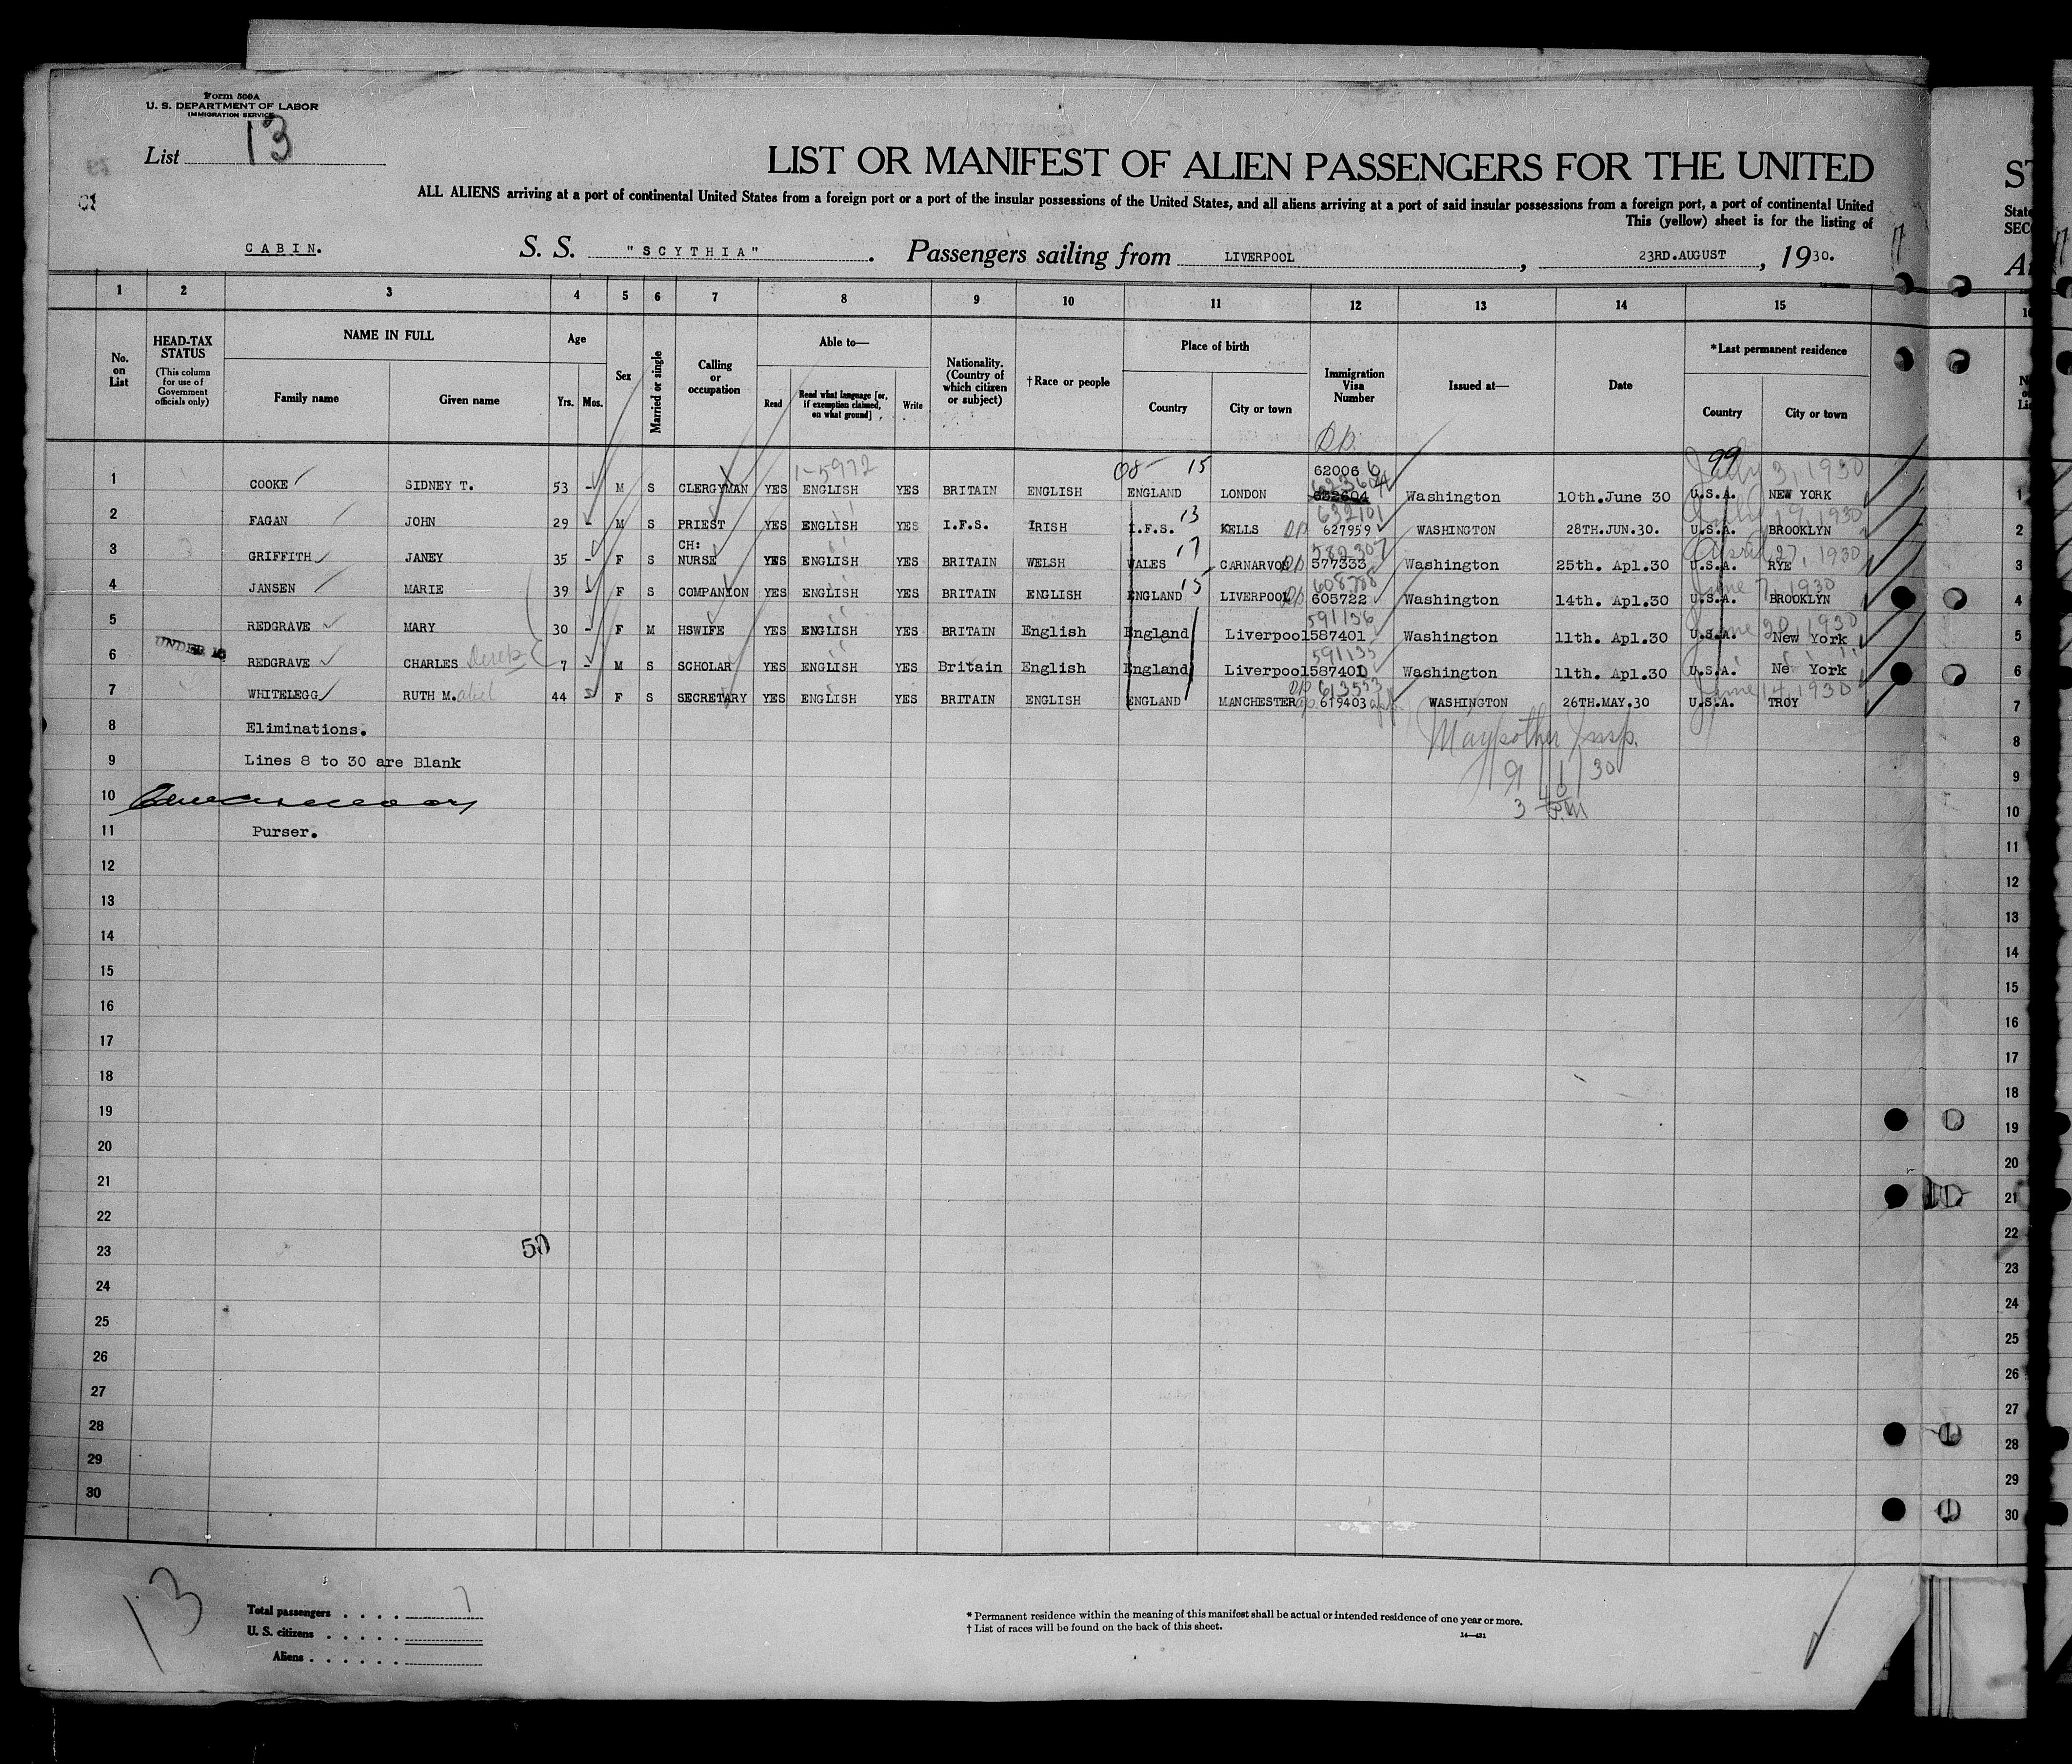 Form 500A
U. S. DEPARTMENT OF LABOR
IMMIGRATION SERVICE
List 13
LIST OR MANIFEST OF ALIEN PASSENGERS FOR THE UNITED
ALL ALIENS arriving at a port of continental United States from a foreign port or a port of the insular possessions of the United States, and all aliens arriving at a port of said insular possessions from a foreign port, a port of continental United
This (yellow) sheet is for the listing of
CABIN. S. S. "SCYTHIA". Passengers sailing from LIVERPOOL, 23RD.AUGUST, 1930.
1 2 3 4 5 6 7 8 9 10 11 12 13 14 15
No. on List
HEAD-TAX STATUS
(This column for use of Government officials only)
NAME IN FULL
Family name Given name
Age
Yrs. Mos.
Sex
Married or single
Calling or occupation
Able to—
Read Read what language [or, if exemption claimed, on what ground] Write
Nationality. (Country of which citizen or subject)
†Race or people
Place of birth
Country City or town
Immigration Visa Number
Issued at—
Date
*Last permanent residence
Country City or town
1-5972
08 15
99
1 COOKE SIDNEY T. 53 - M S CLERGYMAN YES ENGLISH YES BRITAIN ENGLISH ENGLAND LONDON 62006 Washington 10th.June 30 U.S.A. NEW YORK July 3, 1930 1
2 FAGAN JOHN 29 - M S PRIEST YES ENGLISH YES I.F.S. IRISH I.F.S. 13 KELLS 632101 627959 WASHINGTON 28TH.JUN.30. U.S.A. BROOKLYN 1930 2
3 GRIFFITH JANEY 35 - F S CH: NURSE YES ENGLISH YES BRITAIN WELSH WALES 17 CARNARVON 582307 577333 Washington 25th. Apl.30 U.S.A. RYE April 27, 1930 3
4 JANSEN MARIE 39 F S COMPANION YES ENGLISH YES BRITAIN ENGLISH ENGLAND 15 LIVERPOOL 608788 605722 Washington 14th. Apl.30 U.S.A. BROOKLYN June 7, 1930 4
5 REDGRAVE MARY 30 - F M HSWIFE YES ENGLISH YES BRITAIN English England Liverpool 591136 587401 Washington 11th. Apl.30 U.S.A. New York June 20, 1930 5
6 UNDER 16 REDGRAVE CHARLES Derek 7 - M S SCHOLAR YES ENGLISH YES Britain English England Liverpool 591135 587400 Washington 11th. Apl.30 U.S.A. New York 6
7 WHITELEGG RUTH M.abel 44 F S SECRETARY YES ENGLISH YES BRITAIN ENGLISH ENGLAND MANCHESTER 613553 619403 WASHINGTON 26TH.MAY.30 U.S.A. TROY June 14, 1930 7
8 Eliminations. 8
9 Lines 8 to 30 are Blank 9
10 10
11 Purser. 11
Insp.
9/1/30
3 40 P.M
12 12
13 13
14 14
15 15
16 16
17 17
18 18
19 19
20 20
21 21
22 22
23 50 23
24 24
25 25
26 26
27 27
28 28
29 29
30 30
13
Total passengers . . . . 7
U. S. citizens . . . . .
Aliens . . . . . .
* Permanent residence within the meaning of this manifest shall be actual or intended residence of one year or more.
† List of races will be found on the back of this sheet.
14—431